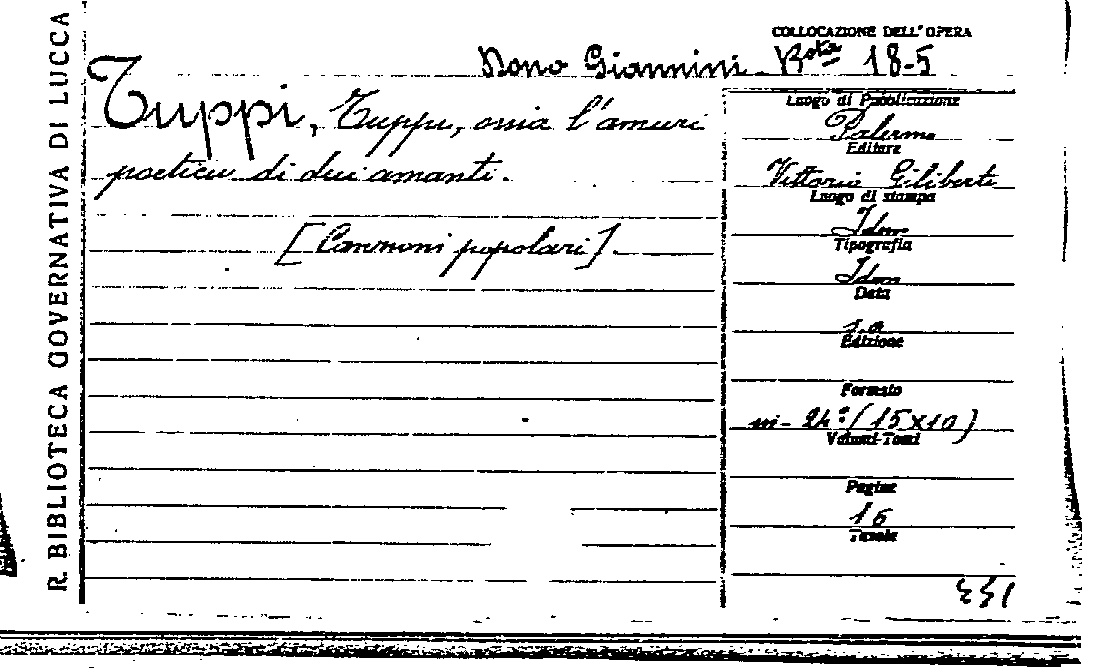 R. BIBLIOTECA GOVERNATIVA DI LUCCA
COLLOCAZIONE DELL'OPERA
Dono Giannini Bsta 18-5
Tuppi, Tuppu, ossia l'amuri
poeticu di dui amanti.
[Canzoni popolari].
Luogo di Pubblicazione
Palermo
Editore
Vittorio Giliberti
Luogo di stampa
Idem
Tipografia
Idem
Data
s.a
Edizione
Formato
in-24º (15x10)
Volumi-Tomi
Pagine
16
Tavole